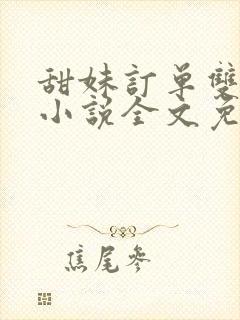 甜妹訂單雙
小說全文免
焦尾參